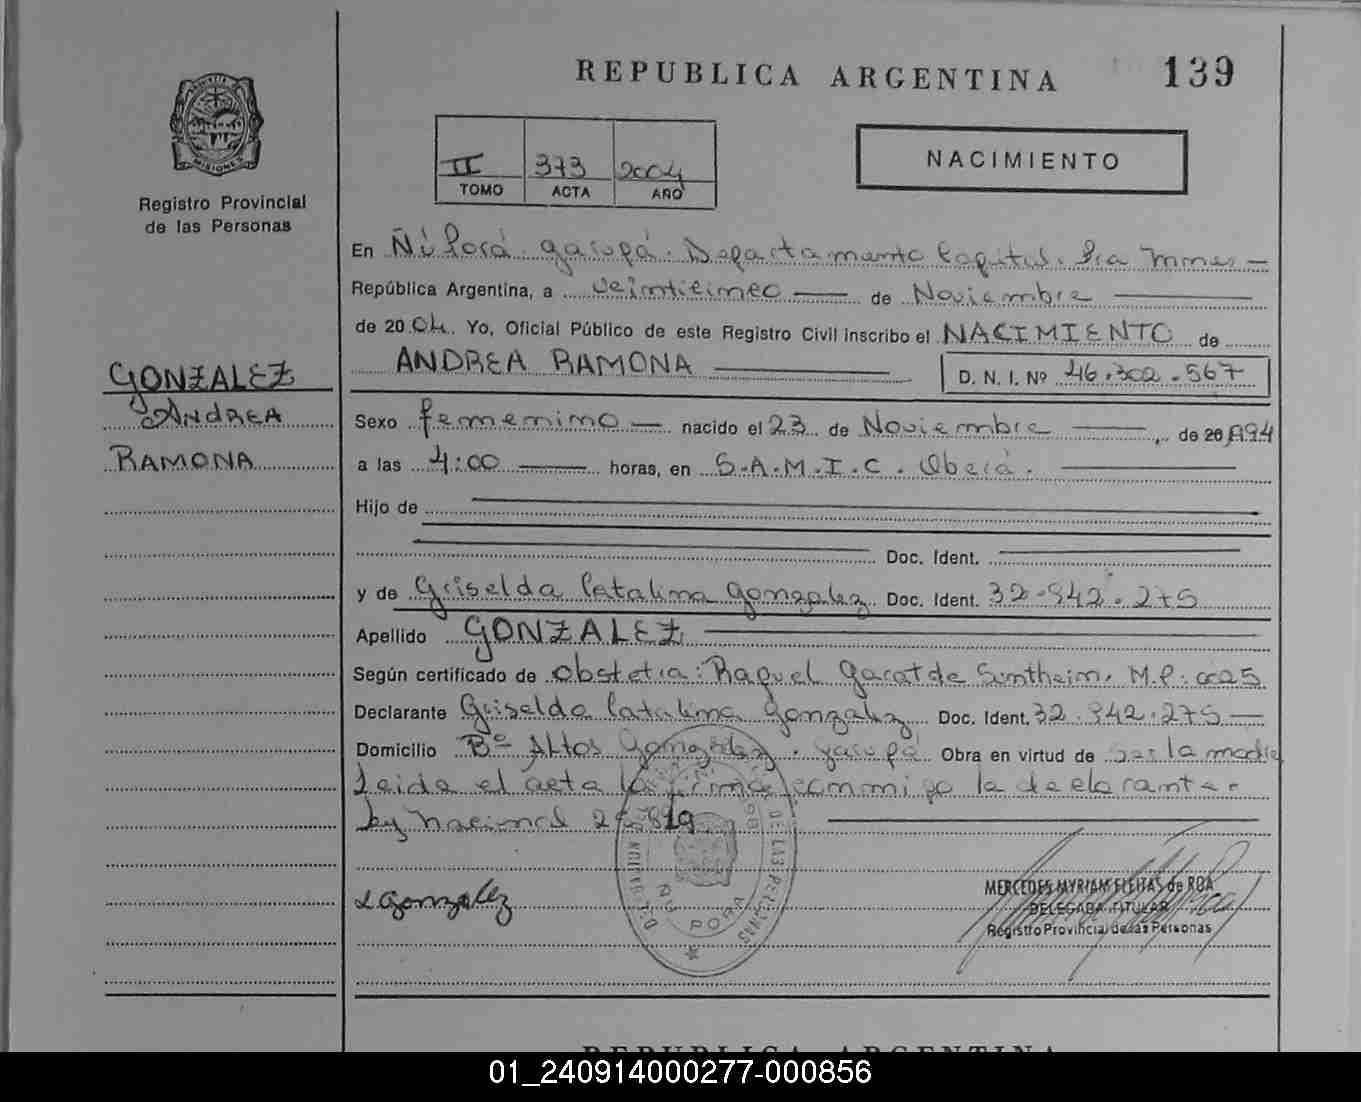 REPUBLICA ARGENTINA 139
PROVINCIA
MISIONES
Registro Provincial
de las Personas
II 373 2004
TOMO ACTA AÑO
NACIMIENTO
En Ñú Porá. Garupá. Departamento Capital. Pcia Mnes —
República Argentina, a veinticinco — de Noviembre —
de 2004. Yo, Oficial Público de este Registro Civil inscribo el NACIMIENTO de
ANDREA RAMONA — D. N. I. Nº 46.302.567
GONZALEZ
ANDREA
RAMONA
Sexo femenino — nacido el 23 de Noviembre —, de 20
a las 4:00 — horas, en S.A.M.I.C. Oberá. —
Hijo de —
— Doc. Ident. —
y de Griselda Catalina Gonzalez Doc. Ident. 32.942.275
Apellido GONZALEZ —
Según certificado de obstetra: Raquel Garat de M.P: 0025
Declarante Griselda Catalina Gonzalez Doc. Ident. 32.942.275 —
Domicilio Bº Altos Gonzalez. Garupá Obra en virtud de ser la madre
Leida el acta la firma conmigo la declarante.
Ley Nacional —
Gonzalez
DELEGACION DE LAS PERSONAS
ÑU PORA
MERCEDES MYRIAM FLEITAS de ROA
DELEGADA TITULAR
Registro Provincial de las Personas
REPUBLICA ARGENTINA
01_240914000277-000856